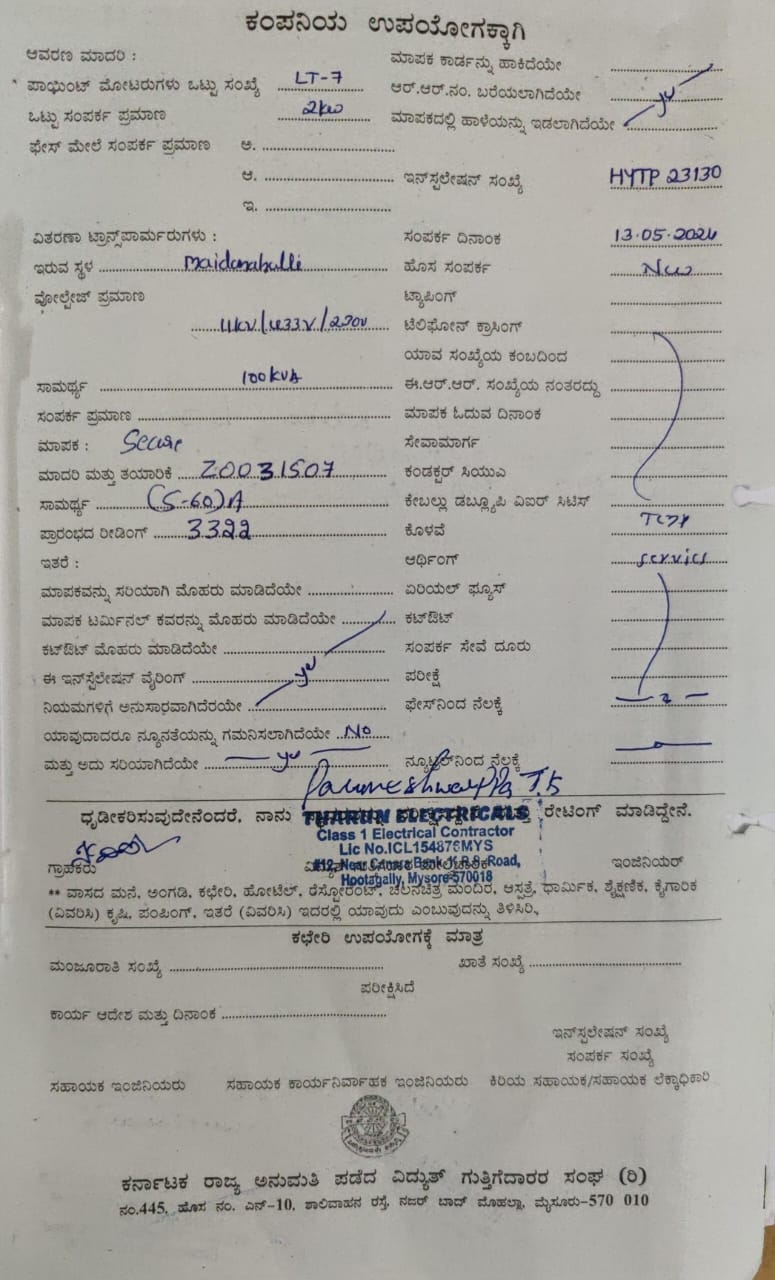 ಕಂಪನಿಯ ಉಪಯೋಗಕ್ಕಾಗಿ
ಆವರಣ ಮಾದರಿ :
ಮಾಪಕ ಕಾರ್ಡನ್ನು ಹಾಕಿದೆಯೇ
ಪಾಯಿಂಟ್ ಮೋಟರುಗಳು ಒಟ್ಟು ಸಂಖ್ಯೆ LT-7
ಆರ್.ಆರ್.ನಂ. ಬರೆಯಲಾಗಿದೆಯೇ
ಒಟ್ಟು ಸಂಪರ್ಕ ಪ್ರಮಾಣ 2kw
ಮಾಪಕದಲ್ಲಿ ಹಾಳೆಯನ್ನು ಇಡಲಾಗಿದೆಯೇ
ಫೇಸ್ ಮೇಲೆ ಸಂಪರ್ಕ ಪ್ರಮಾಣ ಅ.
ಆ.
ಇನ್‌ಸ್ಟಲೇಷನ್ ಸಂಖ್ಯೆ HYTP 23130
ಇ.
ವಿತರಣಾ ಟ್ರಾನ್ಸ್‌ಪಾರ್ಮರುಗಳು :
ಸಂಪರ್ಕ ದಿನಾಂಕ 13.05.2024
ಇರುವ ಸ್ಥಳ Maidanahalli
ಹೊಸ ಸಂಪರ್ಕ New
ವೋಲ್ಟೇಜ್ ಪ್ರಮಾಣ
ಟ್ಯಾಪಿಂಗ್
11KV/433V/230V
ಟೆಲಿಫೋನ್ ಕ್ರಾಸಿಂಗ್
ಯಾವ ಸಂಖ್ಯೆಯ ಕಂಬದಿಂದ
ಸಾಮರ್ಥ್ಯ 100KVA
ಈ.ಆರ್.ಆರ್. ಸಂಖ್ಯೆಯ ನಂತರದ್ದು
ಸಂಪರ್ಕ ಪ್ರಮಾಣ
ಮಾಪಕ ಓದುವ ದಿನಾಂಕ
ಮಾಪಕ : Secure
ಸೇವಾಮಾರ್ಗ
ಮಾದರಿ ಮತ್ತು ತಯಾರಿಕೆ Z0031507
ಕಂಡಕ್ಟರ್ ಸಿಯುಎ
ಸಾಮರ್ಥ್ಯ (5-60)A
ಕೇಬಲ್ಲು ಡಬ್ಲ್ಯೂಪಿ ವಿಐರ್ ಸಿಟಿಸ್
ಪ್ರಾರಂಭದ ರೀಡಿಂಗ್ 3322
ಕೊಳವೆ
ಇತರೆ :
ಆರ್ಥಿಂಗ್ service
ಮಾಪಕವನ್ನು ಸರಿಯಾಗಿ ಮೊಹರು ಮಾಡಿದೆಯೇ
ಏರಿಯಲ್ ಫ್ಯೂಸ್
ಮಾಪಕ ಟರ್ಮಿನಲ್ ಕವರನ್ನು ಮೊಹರು ಮಾಡಿದೆಯೇ
ಕಟ್‌ಔಟ್
ಕಟ್‌ಔಟ್ ಮೊಹರು ಮಾಡಿದೆಯೇ
ಸಂಪರ್ಕ ಸೇವೆ ದೂರು
ಈ ಇನ್‌ಸ್ಟೆಲೇಷನ್ ವೈರಿಂಗ್
ಪರೀಕ್ಷೆ
ನಿಯಮಗಳಿಗೆ ಅನುಸಾರವಾಗಿದೆರಯೇ
ಫೇಸ್‌ನಿಂದ ನೆಲಕ್ಕೆ
ಯಾವುದಾದರೂ ನ್ಯೂನತೆಯನ್ನು ಗಮನಿಸಲಾಗಿದೆಯೇ No
ಮತ್ತು ಅದು ಸರಿಯಾಗಿದೆಯೇ
ನ್ಯೂಟ್ರಲ್‌ನಿಂದ ನೆಲಕ್ಕೆ
Parmeshwarappa T.S
ಧೃಡೀಕರಿಸುವುದೇನೆಂದರೆ, ನಾನು ರೇಟಿಂಗ್ ಮಾಡಿದ್ದೇನೆ.
THARUN ELECTRICALS
Class 1 Electrical Contractor
Lic No.ICL154876MYS
#12, Near Canara Bank, K.R.S. Road,
Hootagally, Mysore-570018
ಗ್ರಾಹಕರು ಇಂಜಿನಿಯರ್
** ವಾಸದ ಮನೆ, ಅಂಗಡಿ, ಕಛೇರಿ, ಹೋಟೆಲ್, ರೆಸ್ಟೋರೆಂಟ್, ಚಲನಚಿತ್ರ ಮಂದಿರ, ಆಸ್ಪತ್ರೆ, ಧಾರ್ಮಿಕ, ಶೈಕ್ಷಣಿಕ, ಕೈಗಾರಿಕ
(ವಿವರಿಸಿ) ಕೃಷಿ, ಪಂಪಿಂಗ್, ಇತರೆ (ವಿವರಿಸಿ) ಇದರಲ್ಲಿ ಯಾವುದು ಎಂಬುವುದನ್ನು ತಿಳಿಸಿರಿ,
ಕಛೇರಿ ಉಪಯೋಗಕ್ಕೆ ಮಾತ್ರ
ಮಂಜೂರಾತಿ ಸಂಖ್ಯೆ ಖಾತೆ ಸಂಖ್ಯೆ
ಪರೀಕ್ಷಿಸಿದೆ
ಕಾರ್ಯ ಆದೇಶ ಮತ್ತು ದಿನಾಂಕ
ಇನ್‌ಸ್ಟಲೇಷನ್ ಸಂಖ್ಯೆ
ಸಂಪರ್ಕ ಸಂಖ್ಯೆ
ಸಹಾಯಕ ಇಂಜಿನಿಯರು ಸಹಾಯಕ ಕಾರ್ಯನಿರ್ವಾಹಕ ಇಂಜಿನಿಯರು ಕಿರಿಯ ಸಹಾಯಕ/ಸಹಾಯಕ ಲೆಕ್ಕಾಧಿಕಾರಿ
ಕರ್ನಾಟಕ ರಾಜ್ಯ ಅನುಮತಿ ಪಡೆದ ವಿದ್ಯುತ್ ಗುತ್ತಿಗೆದಾರರ ಸಂಘ (ರಿ)
ನಂ.445, ಹೊಸ ನಂ. ಎನ್-10, ಶಾಲಿವಾಹನ ರಸ್ತೆ, ನಜರ್ ಬಾದ್ ಮೊಹಲ್ಲಾ, ಮೈಸೂರು-570 010